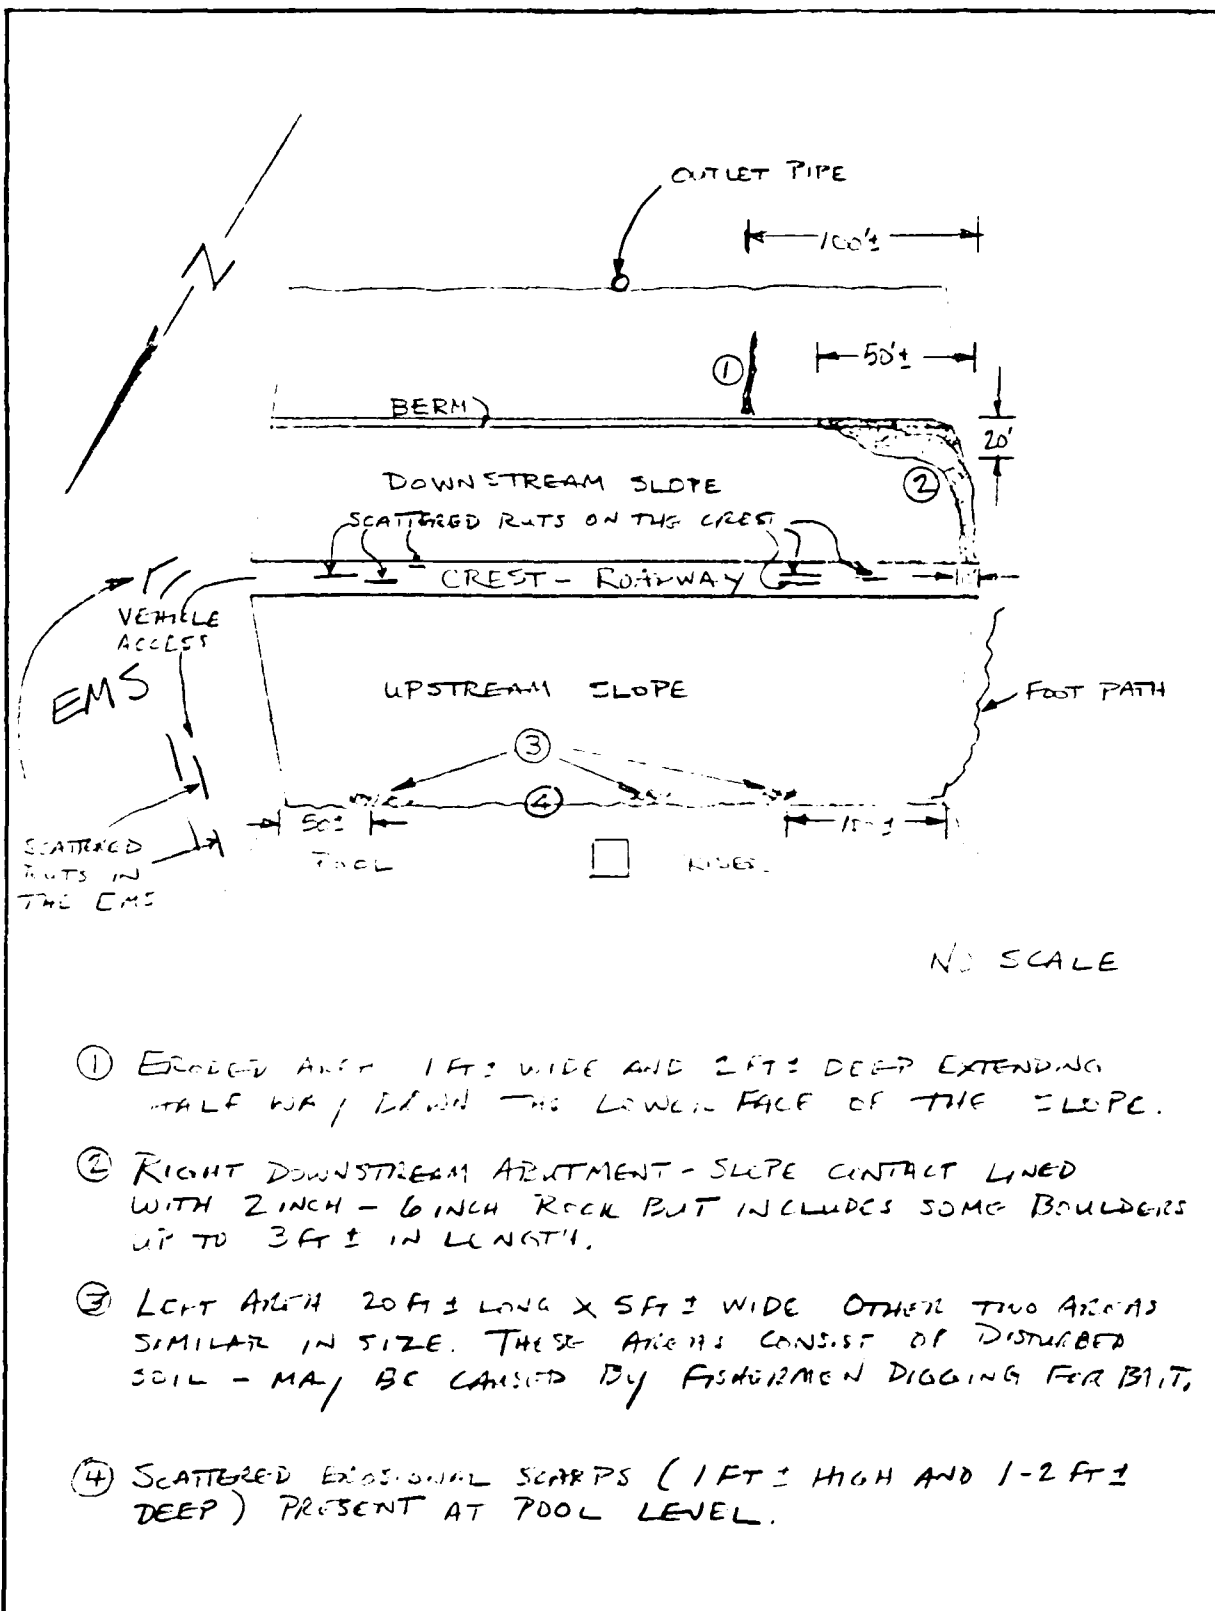 OUTLET PIPE
100'±
N
50'±
①
BERM
20'
②
DOWNSTREAM SLOPE
SCATTERED RUTS ON THE CREST
CREST - ROADWAY
VEHICLE
ACCESS
EMS
UPSTREAM SLOPE
FOOT PATH
③
④
50±
POOL
RISER
SCATTERED
RUTS IN
THE EMS
NO SCALE
① ERODED AREA 1 FT ± WIDE AND FT ± DEEP EXTENDING
HALF WAY DOWN THE LOWER FACE OF THE SLOPE.
② RIGHT DOWNSTREAM ABUTMENT - SLOPE CONTACT LINED
WITH 2 INCH - 6 INCH ROCK BUT INCLUDES SOME BOULDERS
UP TO 3 FT ± IN LENGTH.
③ LEFT AREA 20 FT ± LONG X 5 FT ± WIDE OTHER TWO AREAS
SIMILAR IN SIZE. THESE AREAS CONSIST OF DISTURBED
SOIL - MAY BE CAUSED BY FISHERMEN DIGGING FOR BAIT.
④ SCATTERED EROSIONAL SCARPS (1 FT ± HIGH AND 1-2 FT ±
DEEP) PRESENT AT POOL LEVEL.